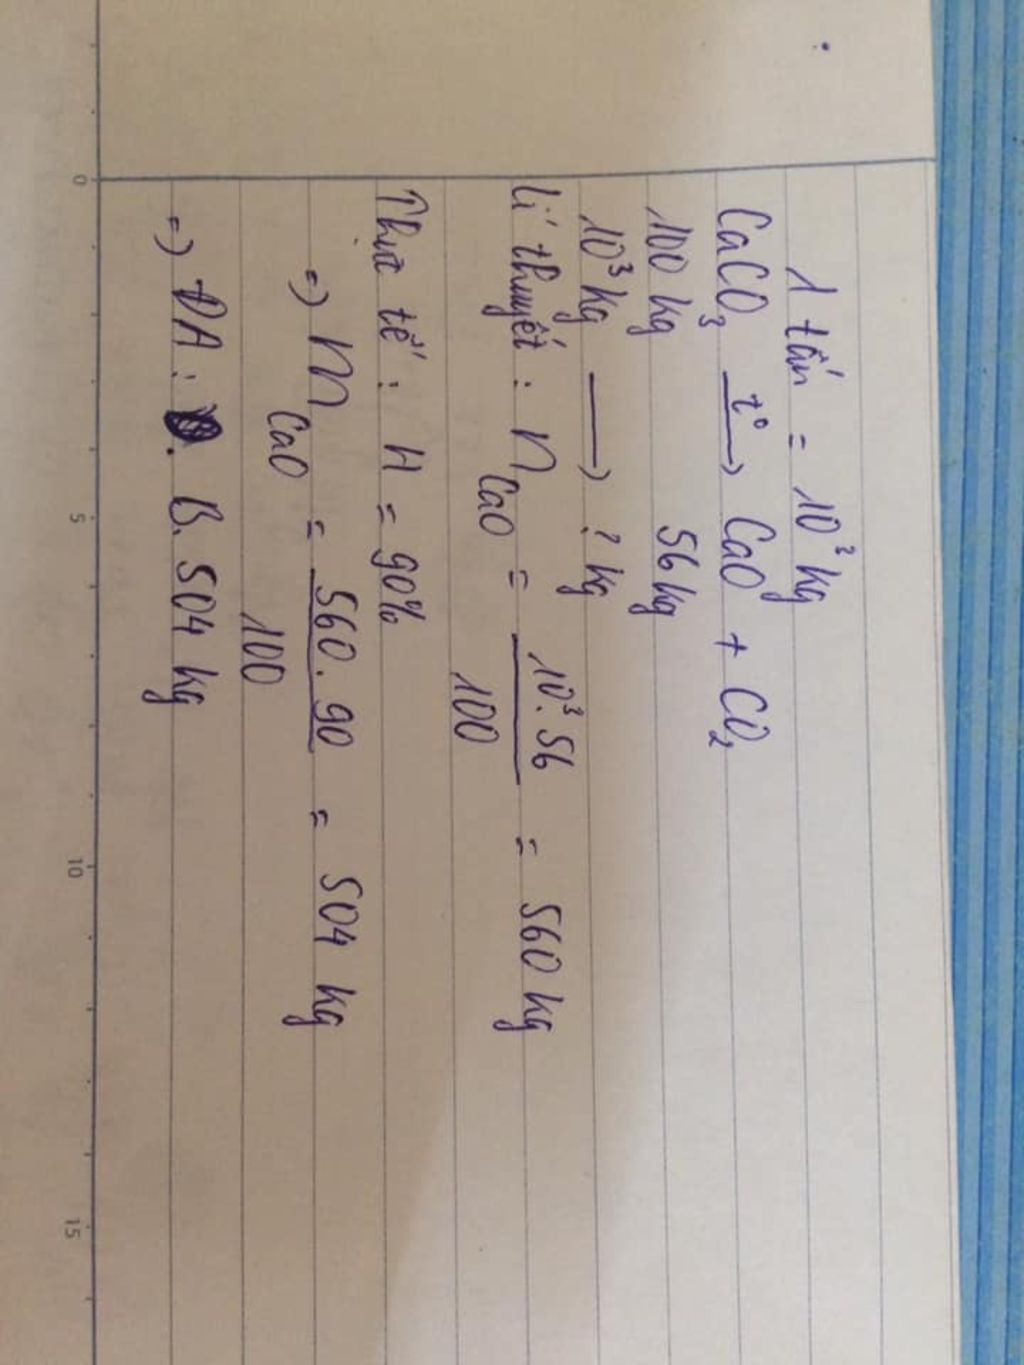 1 tấn = 10³ kg
CaCO₃ —t°→ CaO + CO₂
100 kg 56 kg
10³ kg ⟶ ? kg
Lí thuyết : m CaO = 10³.56 / 100 = 560 kg
Thực tế : H = 90%
=) m CaO = 560.90 / 100 = 504 kg
=) ĐA : B. 504 kg
0 5 10 15